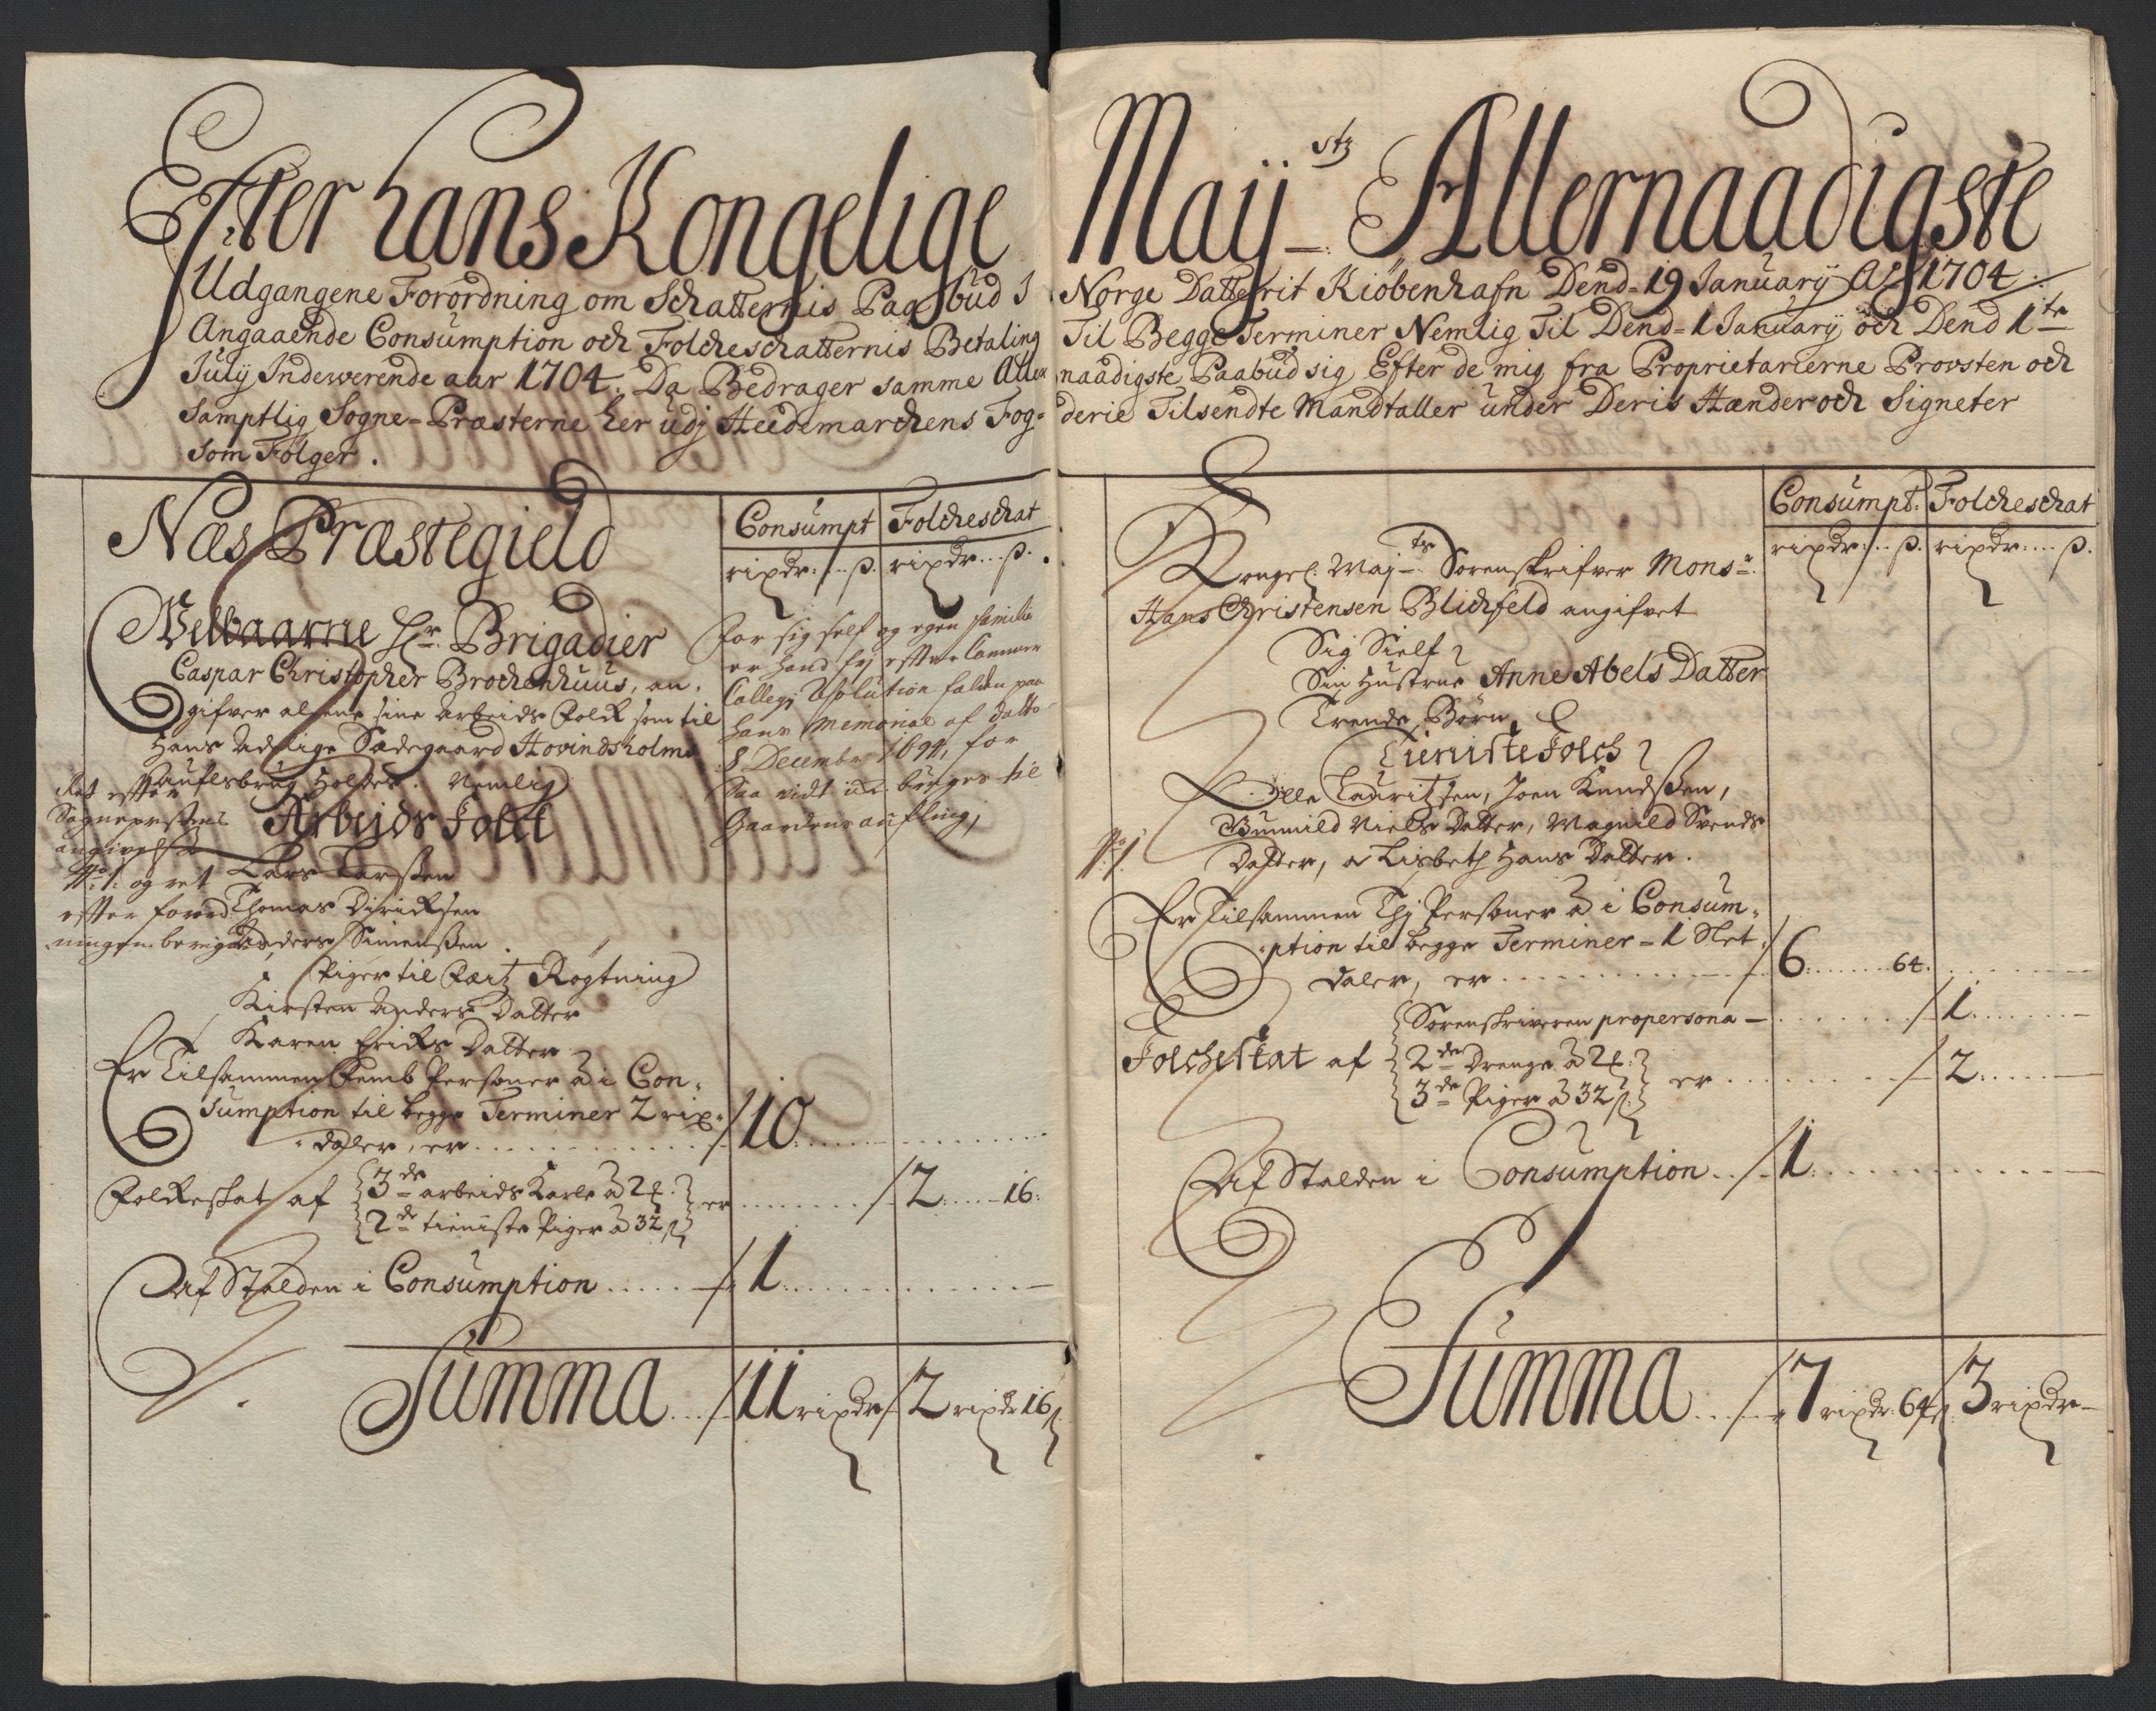 Efter hans Kongelige Maÿ.stz Allernaadigste
Udgangene Forordning om Schatternis Paabud I Norge Datterit Kiöbenhafn Dend 19 Januarÿ Ao 1704
Angaaende Consumption och Folcheschatternis Betaling Til Begge Terminer Nemlig Til Dend 1 Januarÿ och Dend 1te
Julÿ Indewerende aar 1704. Da Bedrager samme Aller naadigste Paabud sig Efter de mig fra Proprietarierne Provsten och
Samptlig Sogne-Præsterne her udj Hedemarchens Fog= derie Tilsendte Mandtaller under Deris Hænder och Signeter
som Fölger.
Næs Præstegield
Consumpt Folcheschat
rixdr: ß. rixdr ß.
Welbaarne Hr. Brigadier
Caspar Christopher Brochenhuus, an=
gifver alene sine arbeids Folk som til
Hans Adelige Sædegaard Hovindsholms
auflsbrug Holdes. Nemlig
For sig self og egen familie
er hand fri efter Cammer
Collegj Resolution falden paa
hans Memorial af datto
8 Decembr 1699, for
saa vidt der bruges til
Gaardens aufling,
Ret efter
Sogneprestens
angivelse
No: 1: og ret
efter forord=
ningen beregnet
Arbeids Folk
Lars Larsen
Thomas Diriksen
Anders Simensen
Piger til Fæitz Rögtning
Kirsten Anders Datter
Karen Eriks Datter
Er Tilsammen Femb Personer à i Con=
sumption til begge Terminer 2 rix=
daler, er 10
Folkeskat af 3de arbeids Karle à 2 er 2 16
2de tieniste Piger à 32 ß
Af Stalden i Consumption 1
Summa 11 rixdr 2 rixdr 16 ß
Consumpt. Folcheschat
rixdr: ß. rixdr: ß.
Kongel: Maj.ts Sorenskrifver Monsr.
Hans Christensen Blichfeld angifvet
Sig Sielf
Sin Hustrue Anne Abels Datter
Trende Börn
Tieniste Folch
Olle Lauritzen, Joen Knudsen,
Gunnild Niels Datter, Magnild Svends
Datter, a Lisbeth Hans Datter.
No: 1
Er Tilsammen Thj Personer à i Consum=
ption til begge Terminer 1 Slet
daler, er 6 64
Sorenskriveren propersona 1
Folcheskat af 2de Drenge à 2 er 2
3de Piger à 32 ß
Af Stalden i Consumption 1
Summa 7 rixdr: 64 ß 3 rixdr